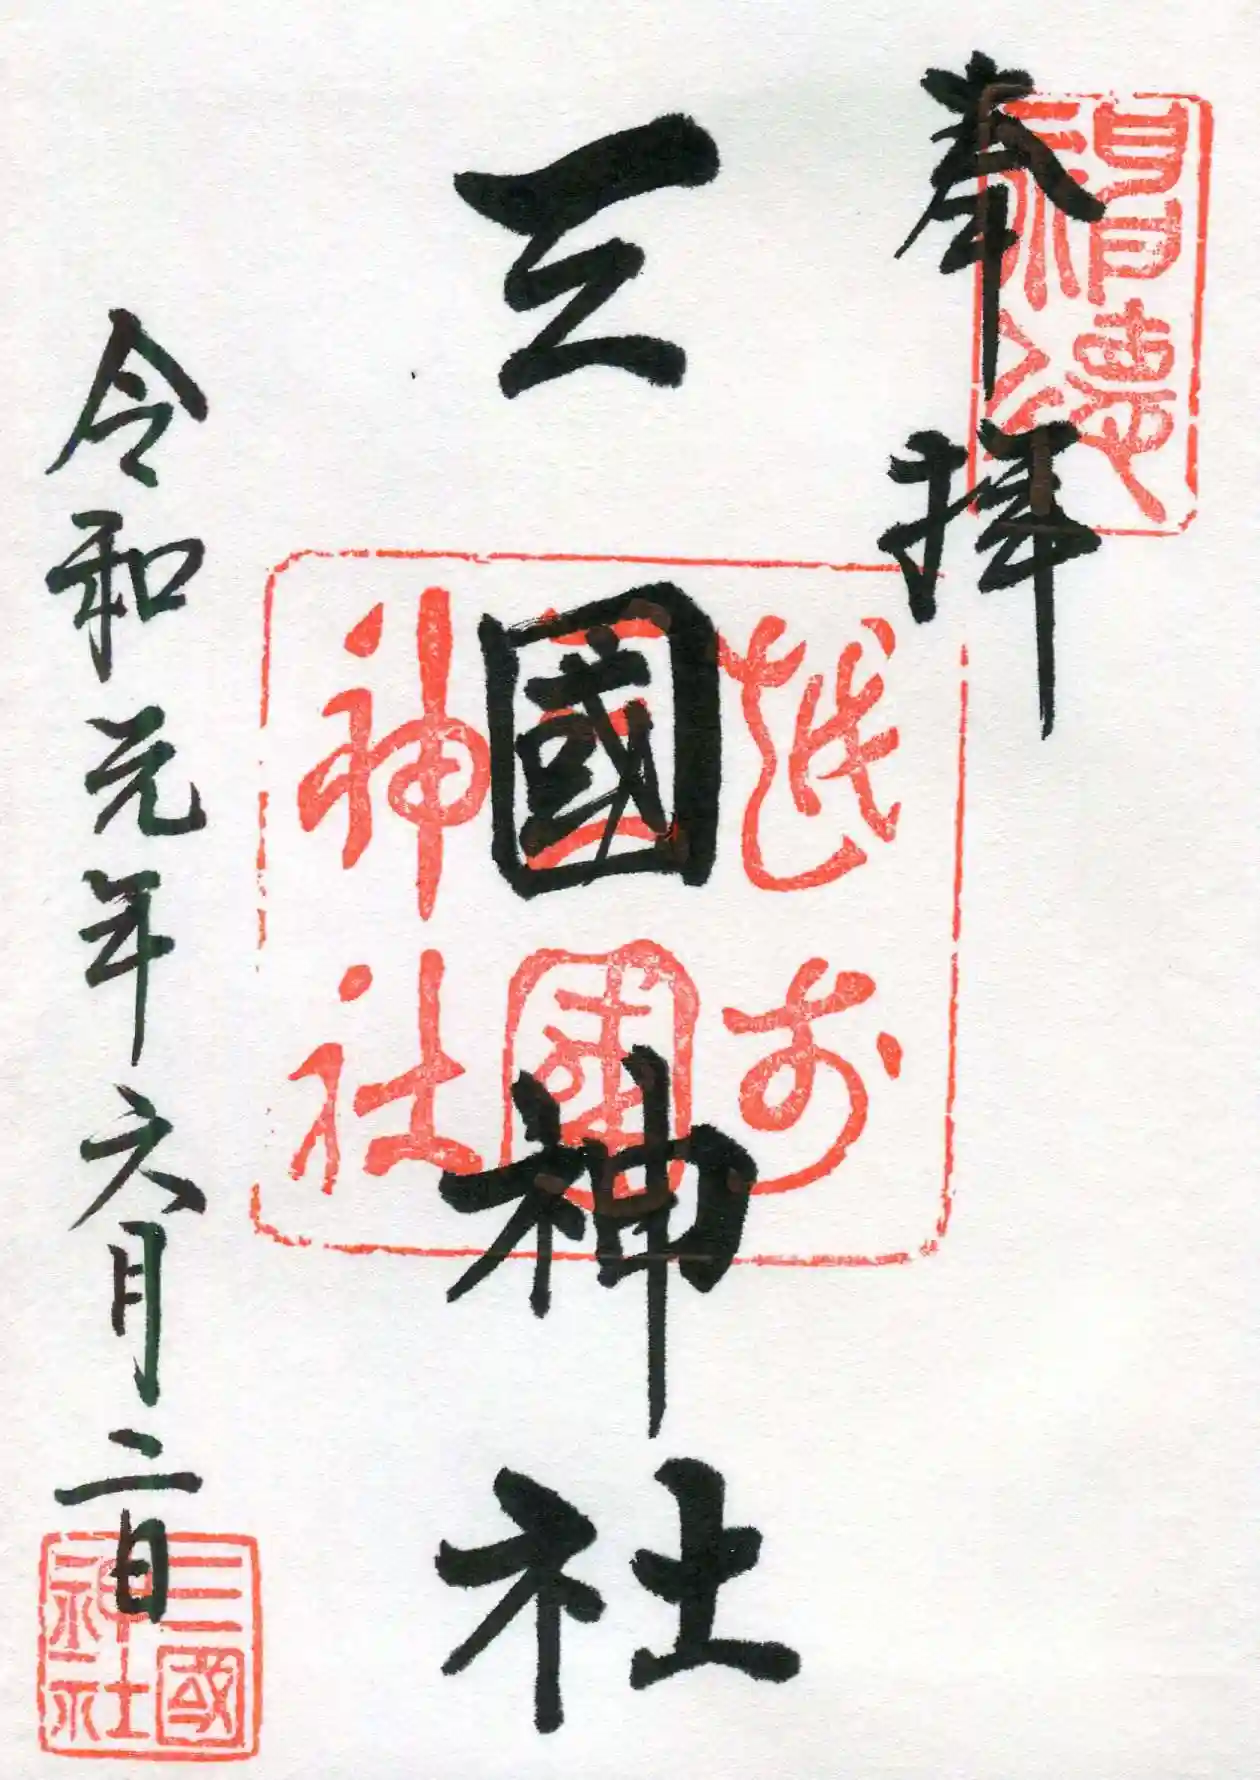 奉拝
三國神社
令和元年六月二日
越前
三國
神社
三國
神社